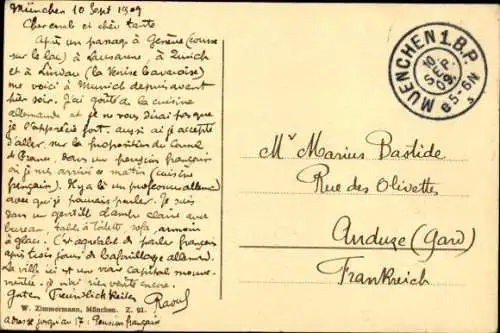 München 10 Sept 1909
Cher oncle et chère tante
Après un passage à Genève (course
sur le lac) à Lausanne, à Zurich
et à Lindau (la Venise bavaroise)
me voici à Munich depuis avant
hier soir. J'ai goûté de la cuisine
allemande et je ne vous dirai pas que
je l'apprécie fort, aussi ai je accepté
d'aller sur la proposition du Consul
de France, dans une pension française
où je me arrivé ce matin (cuisine
française). Il y a là un professeur allemand
avec qui je pourrais parler. Je suis
dans une gentille chambre claire avec
bureau, table à toilette, sofa, armoire
à glace. C'est agréable de parler français
après trois jours de bafouillage allemand.
La ville ici est une vraie capitale mouve-
mentée, je n'ai rien visité encore.
Guten Freundlichkeiten
Raoul
W. Zimmermann, München. Z. 91.
adresse jusqu'au 17. Pension française
MUENCHEN 1. B.P.
10 SEP. 09.
5-6N
Mr Marius Bastide
Rue des Olivettes
Anduze (Gard)
Frankreich